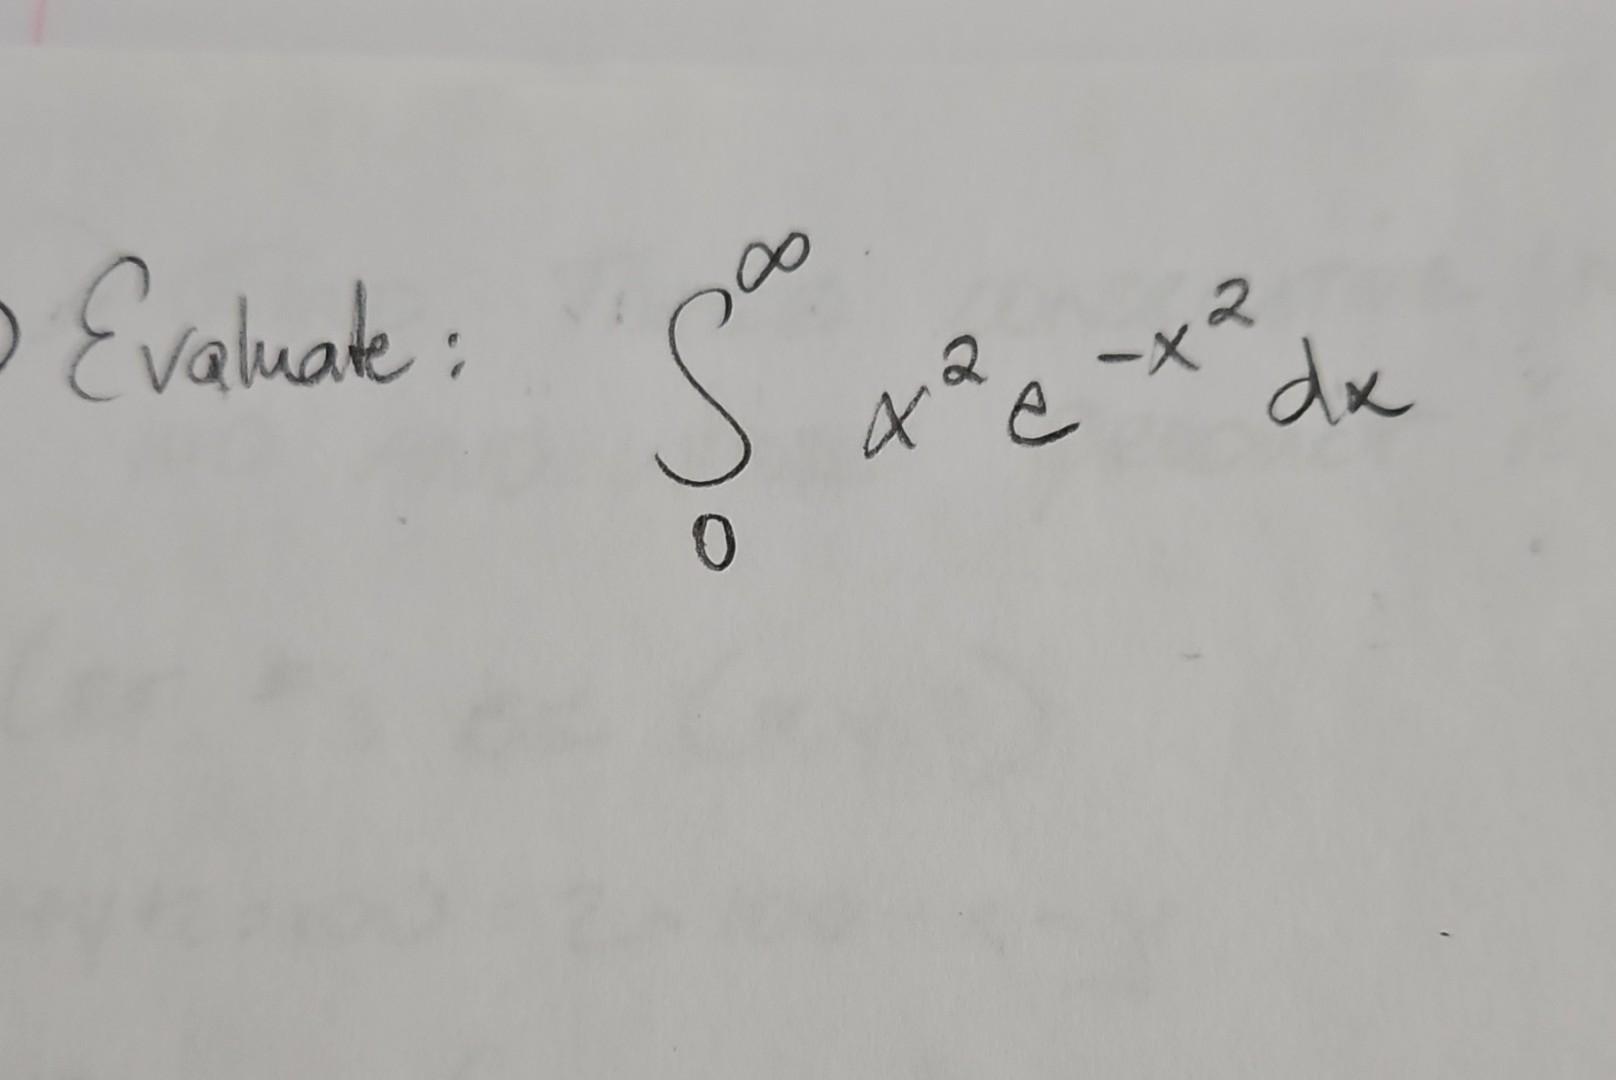 ) Evaluate: ∫₀^∞ x² e^(-x²) dx